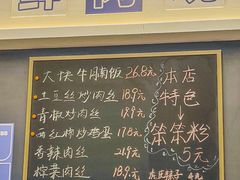 大块牛腩饭 26.8元
土豆丝炒肉丝 18.9元
青椒炒肉丝 19.9元
西红柿炒鸡蛋 17.8元
香辣肉丝 21.9元
榨菜肉丝 18.9元
本店
特色
↓
笨笨粉
5元